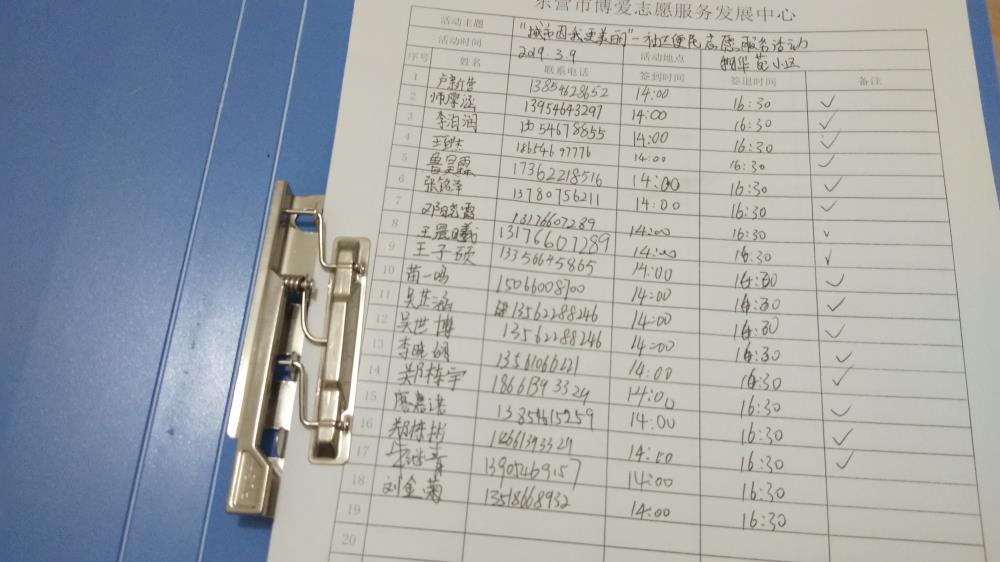 东营市博爱志愿服务发展中心
活动主题 "城市因我更美丽"-社区便民志愿服务活动
活动时间 2019.3.9 活动地点 锦华苑小区
序号 姓名 联系电话 签到时间 签退时间 备注
1 卢新营 13854628652 14:00 16:30 ✓
2 师摩涵 13954643297 14:00 16:30 ✓
3 李洵润 54678855 14:00 16:30 ✓
4 18654697776 14:00 16:30 ✓
5 鲁昊霖 17362218516 14:00 16:30 ✓
6 张铭泽 13780756211 14:00 16:30 ✓
7 邓晓雷 13176607289 14:00 16:30 ✓
8 王晨曦 13176607289 14:00 16:30 ✓
9 王子硕 13356645865 14:00 16:30 ✓
10 苗一鸣 15066008700 14:00 16:30 ✓
11 吴芷涵 13562288246 14:00 16:30 ✓
12 吴世博 13562288246 14:00 16:30 ✓
13 李晓 13561066221 14:00 16:30 ✓
14 郑栋宇 18661393329 14:00 16:30 ✓
15 13854615259 14:00 16:30 ✓
16 郑栋 18661393329 14:00 16:30
17 13905469157 14:00 16:30
18 刘金菊 13518668932 14:00 16:30
19
20